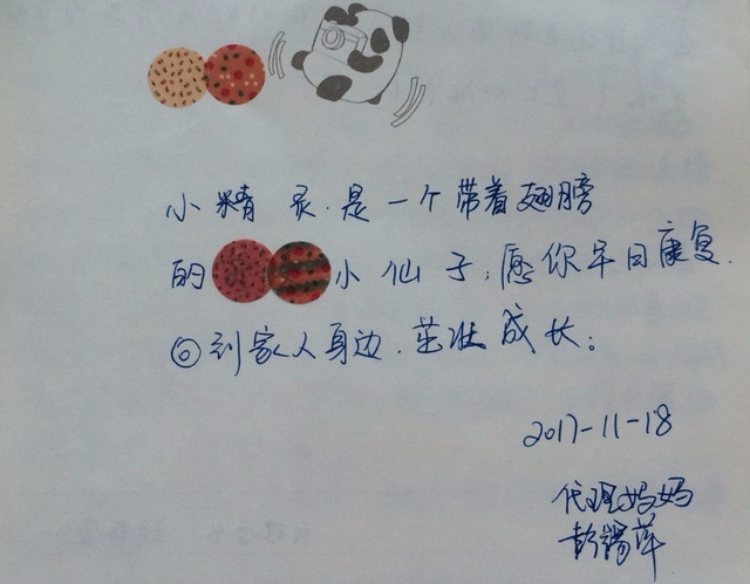 小精灵.是一个带着翅膀
的小仙子;愿你早日康复.
回到家人身边.茁壮成长;
2017-11-18
代理妈妈